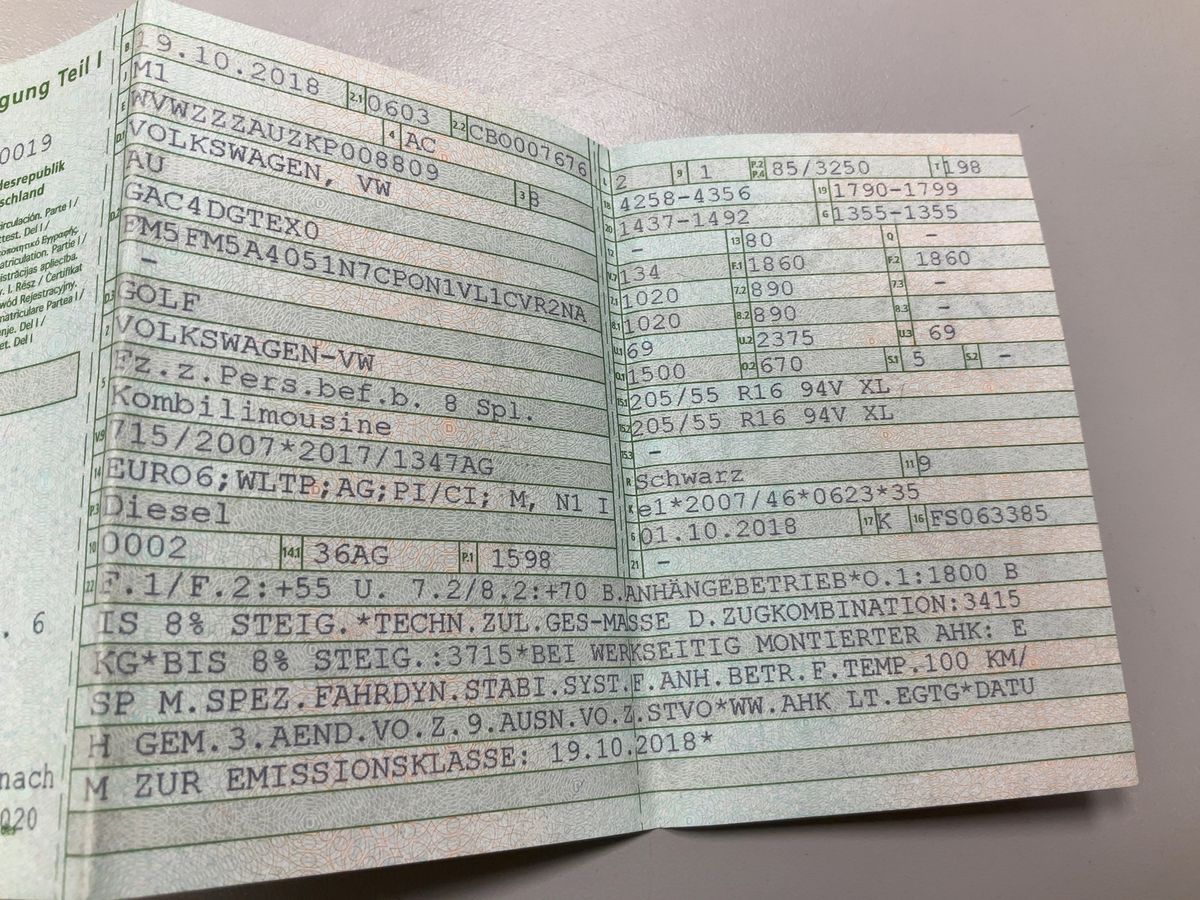 gung Teil I
0019
desrepublik
schland
B 19.10.2018 2.1 0603 2.2 CB0007676
J M1 4 AC
E WVWZZZAUZKP008809 3 B
D.1 VOLKSWAGEN, VW
AU
D.2 GAC4DGTEX0
FM5FM5A4051N7CPON1VL1CVR2NA
–
D.3 GOLF
2 VOLKSWAGEN-VW
5 Fz.z.Pers.bef.b. 8 Spl.
Kombilimousine
V.9 715/2007*2017/1347AG
14 EURO6;WLTP;AG;PI/CI; M, N1 I
P.3 Diesel
10 0002 14.1 36AG P.1 1598
L 2 9 1 P.2 P.4 85/3250 T 198
18 4258-4356 19 1790-1799
20 1437-1492 G 1355-1355
12 – 13 80 Q –
V.7 134 F.1 1860 F.2 1860
7.1 1020 7.2 890 7.3 –
8.1 1020 8.2 890 8.3 –
U.1 69 U.2 2375 U.3 69
O.1 1500 O.2 670 S.1 5 S.2 –
15.1 205/55 R16 94V XL
15.2 205/55 R16 94V XL
15.3 –
R Schwarz 11 9
K e1*2007/46*0623*35
6 01.10.2018 17 K 16 FS063385
21 –
22 F.1/F.2:+55 U. 7.2/8.2:+70 B.ANHÄNGEBETRIEB*O.1:1800 B
IS 8% STEIG.*TECHN.ZUL.GES-MASSE D.ZUGKOMBINATION:3415
KG*BIS 8% STEIG.:3715*BEI WERKSEITIG MONTIERTER AHK: E
SP M.SPEZ.FAHRDYN.STABI.SYST.F.ANH.BETR.F.TEMP.100 KM/
H GEM.3.AEND.VO.Z.9.AUSN.VO.Z.STVO*WW.AHK LT.EGTG*DATU
M ZUR EMISSIONSKLASSE: 19.10.2018*
. 6
nach
020